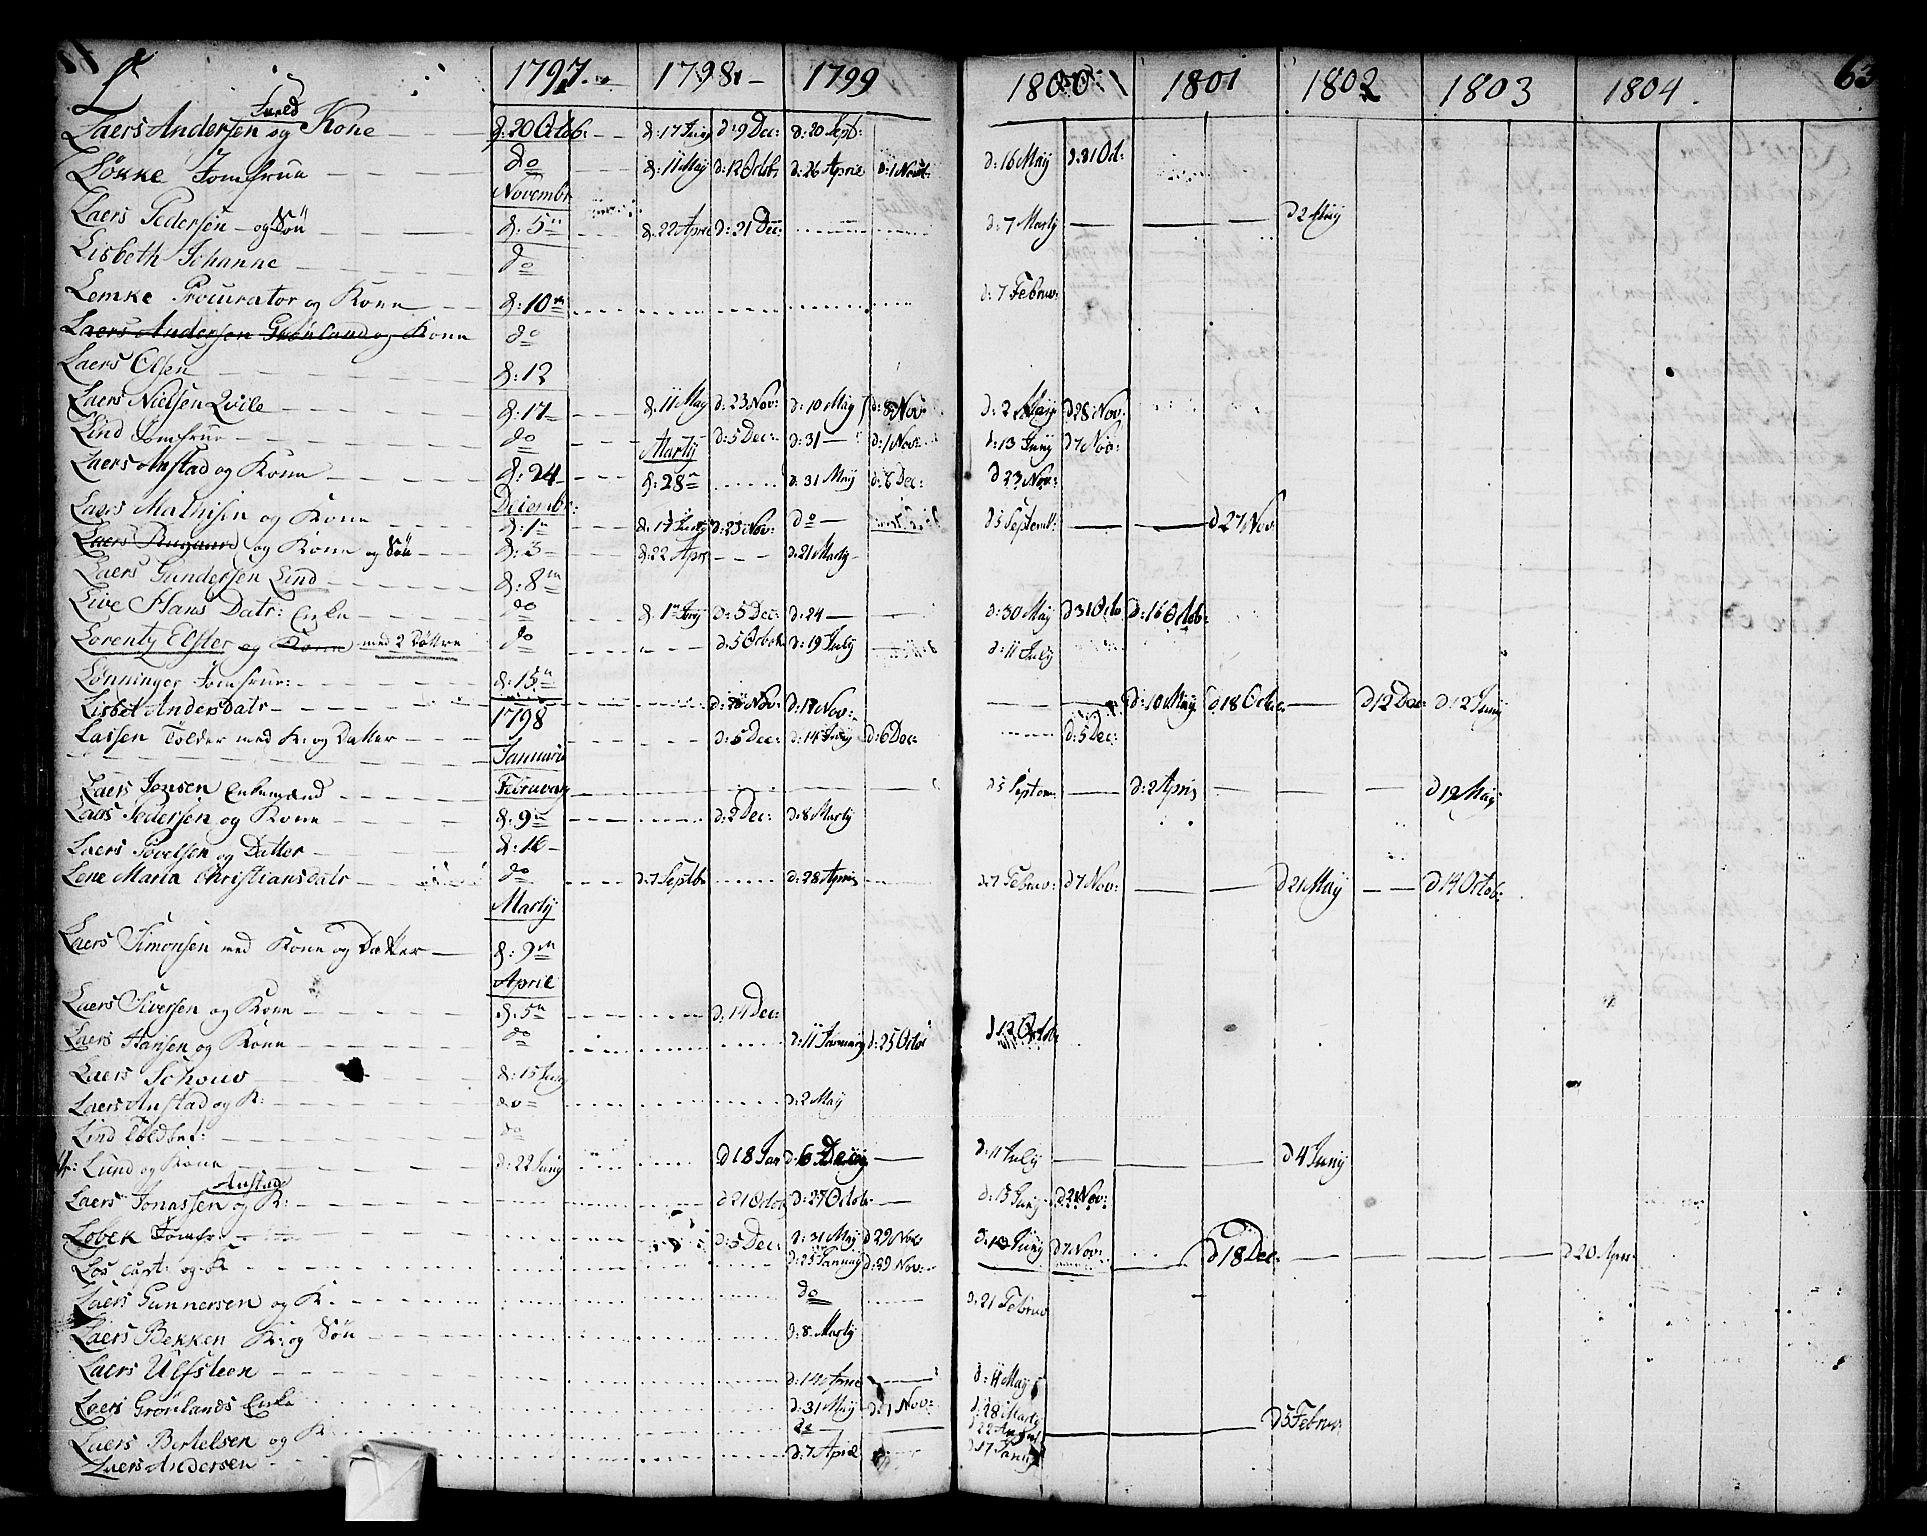 L 1797. 1798. 1799 1800 1801 1802 1803 1804. 63
Laers Andersen og Kone d: 20 Octob: d: 17 Junij d: 9 Dec: d: 20 Sept:
Løkke Jomfrue do d: 11 Maij d: 12 Octob: d: 26 April d: 1 Nov: d: 16 Maij d: 31 Oct:
Novembr
Laers Pedersen og Søn d: 5te d: 22 April d: 21 Dec: d: 7 Martij d 2 Maij
Lisbeth Johanne do
Lemke Procurator og Kone d: 10de d: 7 Februar:
Laers Andersen Grønland og Kone do
Laers Olsen d: 12
Laers Nielsen Qvile d: 17 d: 11 Maij d: 23 Nov: d: 10 Maij d: 8 Nov d: 2 Maij d 28 Nov:
Lind Jomfrue do Martij d: 5 Dec: d: 31 d: 1 Nov: d: 13 Junij d 7 Nov:
Laers Anstad og Kone d: 24 d: 28 d: 31 Maij d: 6 Dec: d 23 Nov:
Decembr:
Laers Mathisen og Kone d: 1 d: 17 Junij d: 23 Nov: do d 5 Septemb: d 27 Nov
Laers Rugaard og Kone og Søn d: 3 d: 22 Apr d: 21 Martij
Laers Gundersen Lind d: 8
Live Hans Datr: Enke do d: 1 Junij d: 5 Dec: d: 24 d: 30 Maij d 31 Octo d: 16 Octob:
Lorentz Elster og Kone med 2 Døttre do d: 5 Octob d: 19 Julij d: 11 Julij
Lønninger Jomfrue: d: 15
Lisbet Andersdatr d: 18 Nov: d: 10 Maij d: 18 Octo: d 12 Dec: d 12 Junij
1798
Lassen Tolder med K: og Datter d: 5 Dec: d: 14 Julij d: 6 Dec: d: 5 Dec:
Januari
Laers Jonsen Enkemand Februarij d 5 Septem: d: 2 April d 19 Maij
Laers Pedersen og Kone d: 9 d: 2 Dec: d: 8 Martij
Laers Povelsen og Datter d: 16
Lene Maria Christiansdatr do d: 7 Septbr d: 28 April d: 7 Februar: d 7 Nov: d 21 Maij d 14 Octob:
Martij
Laers Simonsen med Kone og Datter d: 9
April
Laers Siversen og Kone d: 5 d: 14 Dec:
Laers Hansen og Kone do d: 11 Januarij d: 25 Octo d 12 Octob:
Laers Schouv d: 15 Junij
Laers Anstad og K: do d: 2 Maij
Lind Toldbet: do
Lund og Kone d: 22 Junij d 18 Jan d: 11 Julij d 4 Junij
Anstad
Laers Jonassen og K: d 21 Octob d: 27 Octob: d: 13 Junij d 21 Nov:
Løbek Jomfr: d: 5 Dec: d: 31 Maij d 29 Nov d: 13 Junij d 7 Nov: d 18 Dec: d 20 Apr
og K d: 25 Januarij d: 29 Nov:
Laers Gunnersen og K. do d: 21 Februar
Laers Bekken K: og Søn d: 8 Martij
Laers Ulfsteen d: 14 April d: 4 Maij
Laers Grønlands Enke d: 31 Maij d: 1 Nov: d: 28 Martij d 5 Februar
Laers Bertelsen og K do d 22 August
Laers Andersen d: 7 April d 17 Januarij